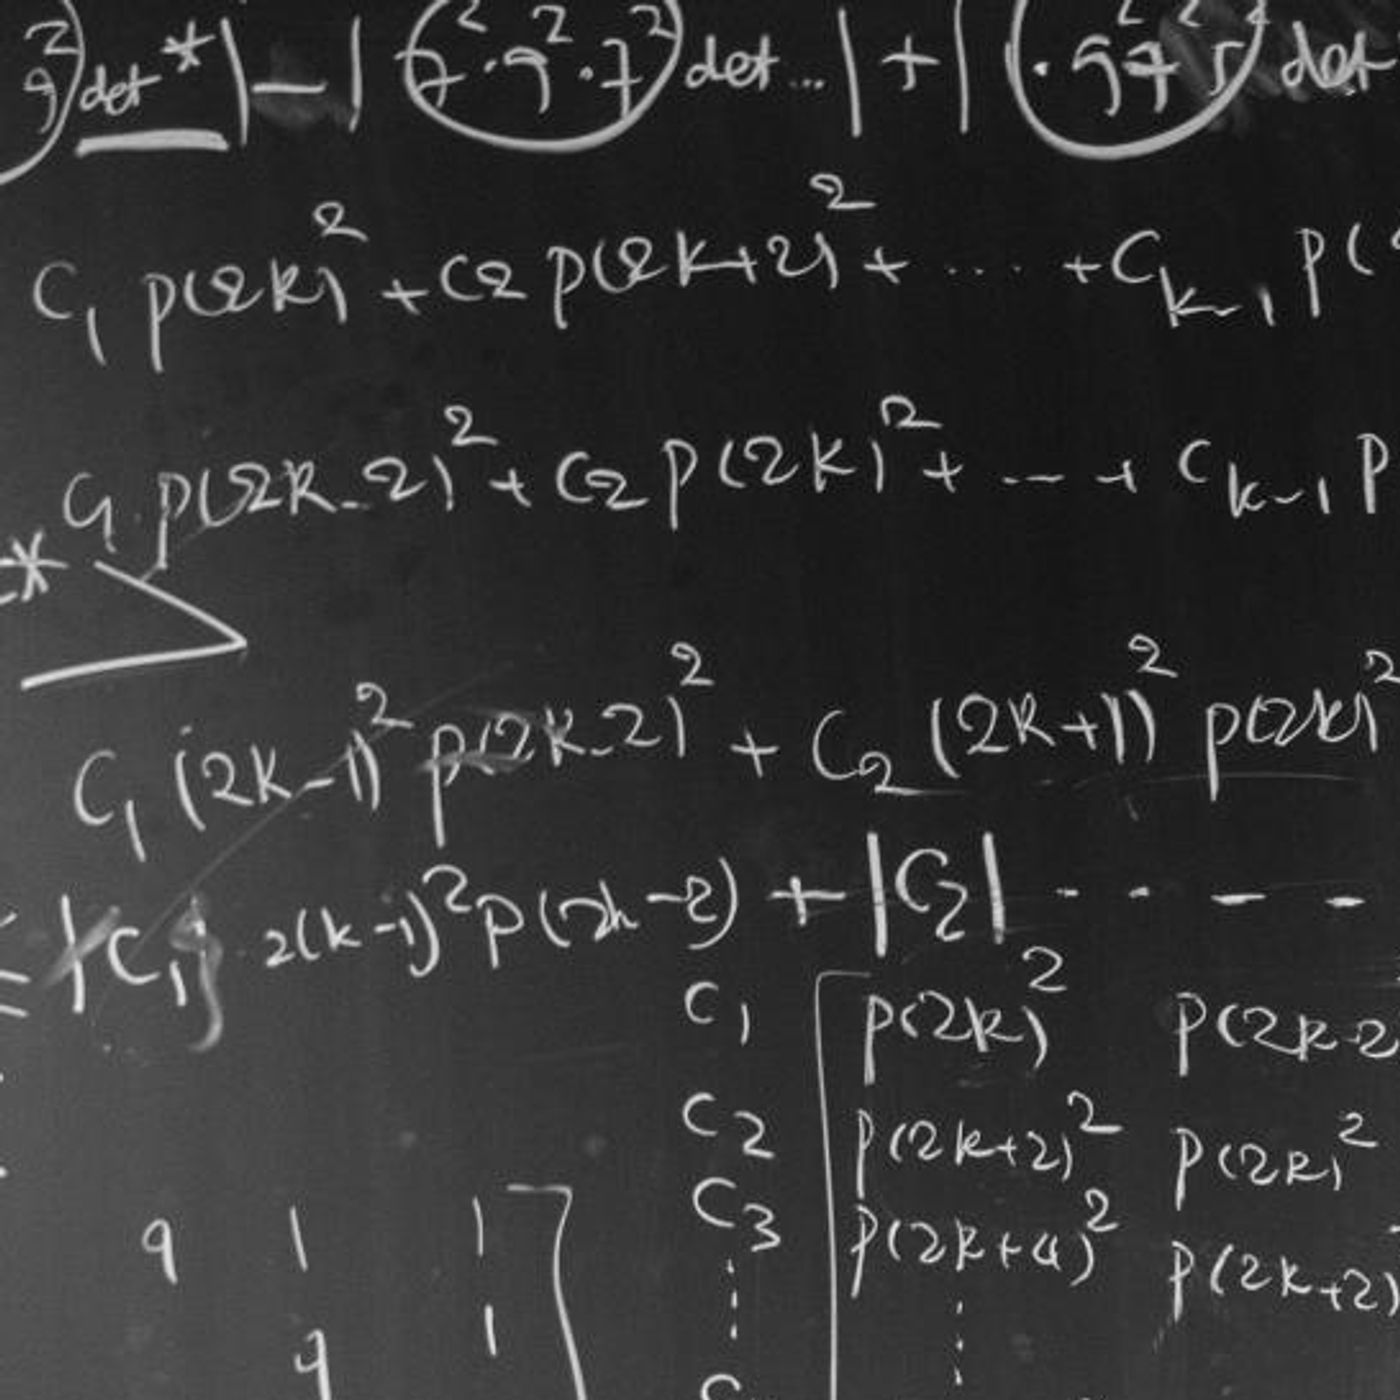 9)² det* | - | (7²·9²·7²) det... | + | (·9²7²5²) det
C₁ p(2k)² + C2 p(2k+2)² + .... + C_{k-1} p(
C₁ p(2k-2)² + C2 p(2k)² + --- + C_{k-1} p
*
C₁ (2k-1)² p(2k-2)² + C₂ (2k+1)² p(2k)²
|C₁| 2(k-1)² p(2k-2) + |C₂| - - - -
C₁ [ p(2k)² p(2k-2
C2 p(2k+2)² p(2k)²
C3 p(2k+4)² p(2k+2)
9 1 1 ]
9 1